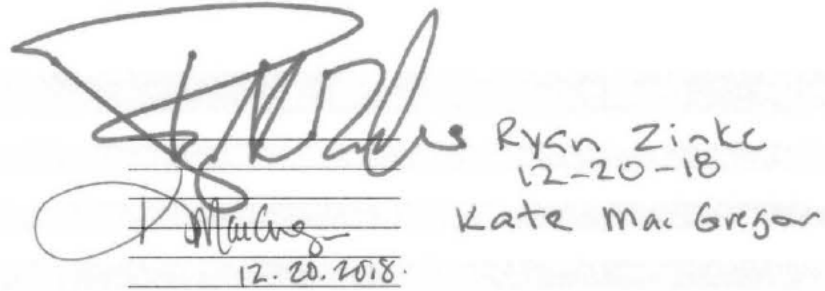 Ryan Zinke
12-20-18
Kate MacGregor
12.20.2018.